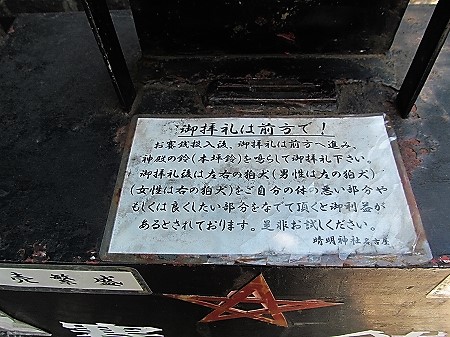 御拝礼は前方で！
お賽銭投入後、御拝礼は前方へ進み、
神殿の鈴(本坪鈴)を鳴らして御拝礼下さい。
御拝礼後は左右の狛犬(男性は左の狛犬)
(女性は右の狛犬)をご自分の体の悪い部分や
もしくは良くしたい部分をなでて頂くと御利益が
あるとされております。是非お試しください。
晴明神社名古屋
売繁盛